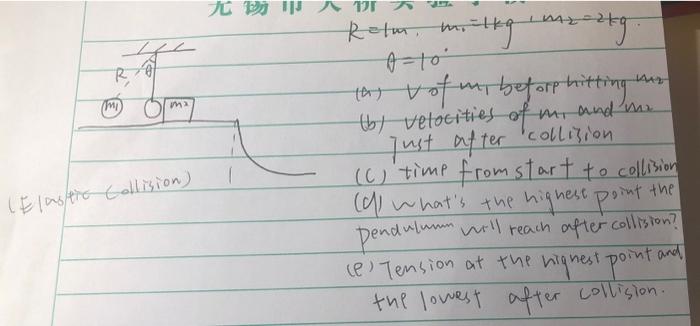 无锡市大桥实验学校
R=1m, m₁=1kg, m₂=2kg.
θ=10°
R θ
m₁ m₂
(a) V of m₁ before hitting m₂
(b) velocities of m₁ and m₂
just after collision
(Elastic Collision)
(c) time from start to collision
(d) what's the highest point the
pendulumn will reach after collision?
(e) Tension at the highest point and
the lowest after collision.